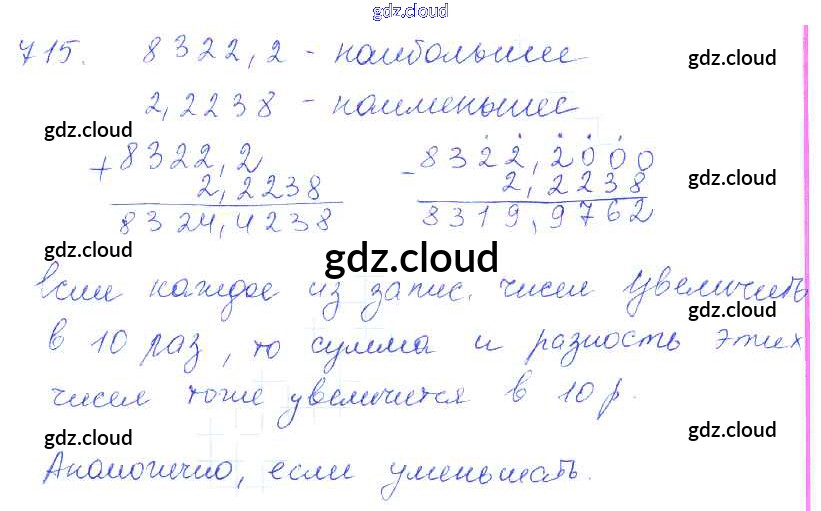 gdz.cloud
715. 8322,2 - наибольшее
gdz.cloud
2,2238 - наименьшее
gdz.cloud
+ 8322,2
2,2238
8324,4238
- 8322,2000
2,2238
8319,9762
gdz.cloud
gdz.cloud
gdz.cloud
Если каждое из запис. чисел увеличить
gdz.cloud
в 10 раз, то сумма и разность этих
gdz.cloud
чисел тоже увеличится в 10 р.
gdz.cloud
gdz.cloud
Аналогично, если уменьшать.